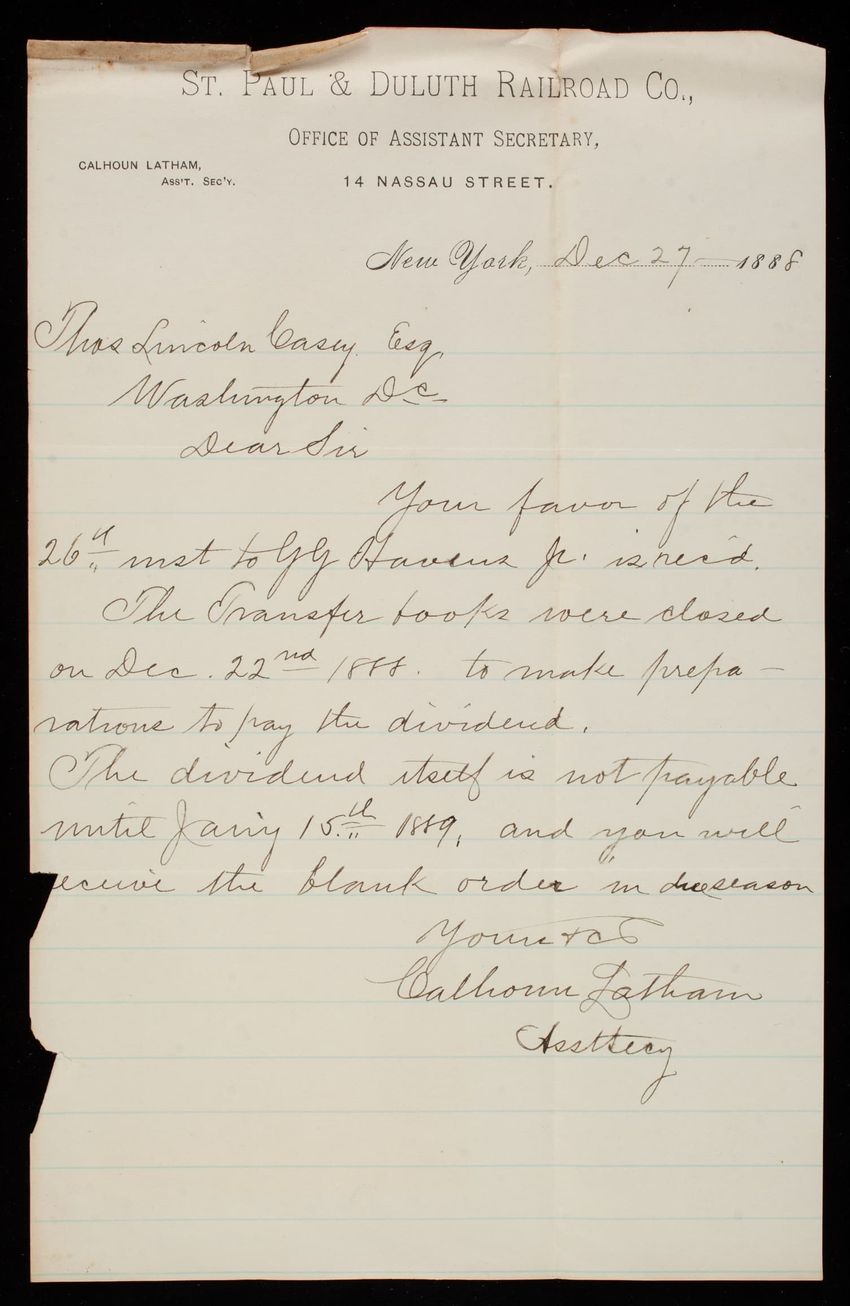 ST. PAUL & DULUTH RAILROAD CO.,
OFFICE OF ASSISTANT SECRETARY,
CALHOUN LATHAM,
ASS'T. SEC'Y.
14 NASSAU STREET.
New York, Dec 27 — 1888
Thos Lincoln Casey. Esq.
Washington DC
Dear Sir
Your favor of the
26th inst to GG Havens Jr. is rec'd.
The Transfer books were closed
on Dec. 22nd 1888. to make prepa-
rations to pay the dividend.
The dividend itself is not payable
until Jan'y 15th 1889, and you will
receive the blank order in due season
Yours &c
Calhoun Latham
Asst Secy